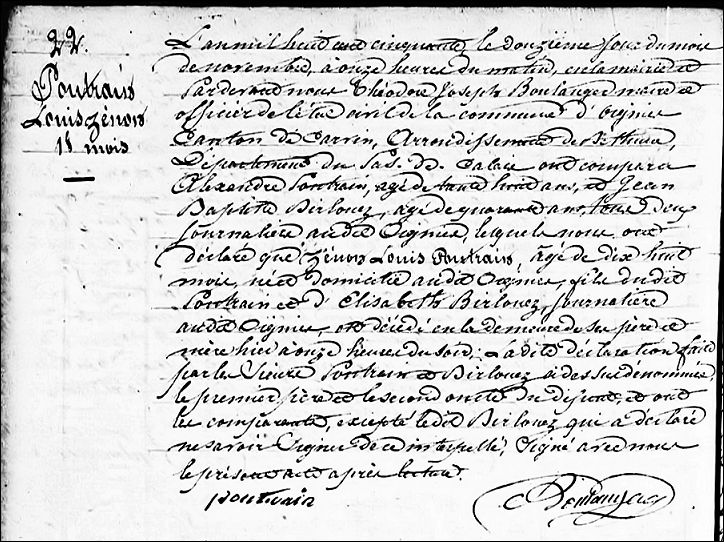 22.
Pontrain
Louis Zénon
18 mois
L'an mil huit cent cinquante, le douzième jour du mois
de novembre, à onze heures du matin, en la mairie et
Pardevant nous Théodore Joseph Boulanger maire et
officier de l'état civil de la commune d'Oignies
Canton de Carvin, Arrondissement de Béthune,
Département du Pas-de-Calais ont comparu
Alexandre Pontrain, agé de trente huit ans, et Jean
Baptiste Birlouez, agé de quarante ans, tous deux
journaliers audit Oignies, lesquels nous ont
déclaré que Zénon Louis Pontrain, âgé de dix huit
mois, né et domicilié audit Oignies, fils dudit
Pontrain et d'Elisabeth Birlouez, journalière
audit Oignies, est décédé en la demeure de ses père et
mère hier à onze heures du soir. La dite déclaration faite
par les Sieurs Pontrain et Birlouez ci dessus dénommés,
le premier père et le second oncle du défunt, et ont
les comparants, excepté ledit Birlouez qui a déclaré
ne savoir Signer de ce interpellé, Signé avec nous
le présent acte après lecture.
pontrain Boulanger